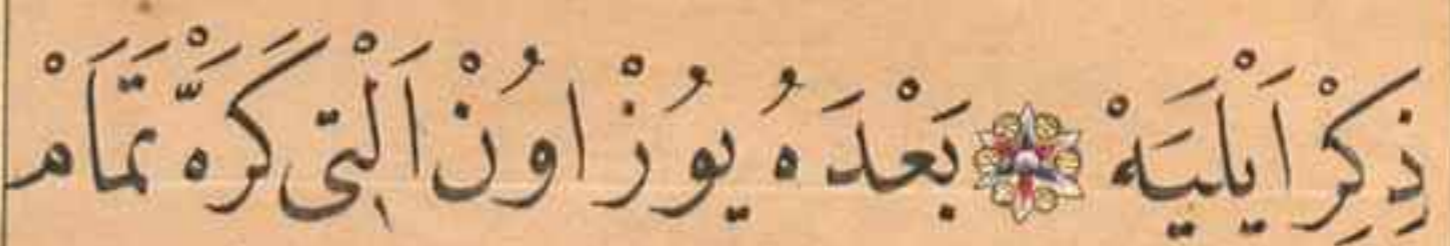 ذِكِرْ اَيْلَيَهْ ۞ بَعْدَهُ يُوزْ اوُنْ اَلْتِى كَرَّهْ تَمَامْ